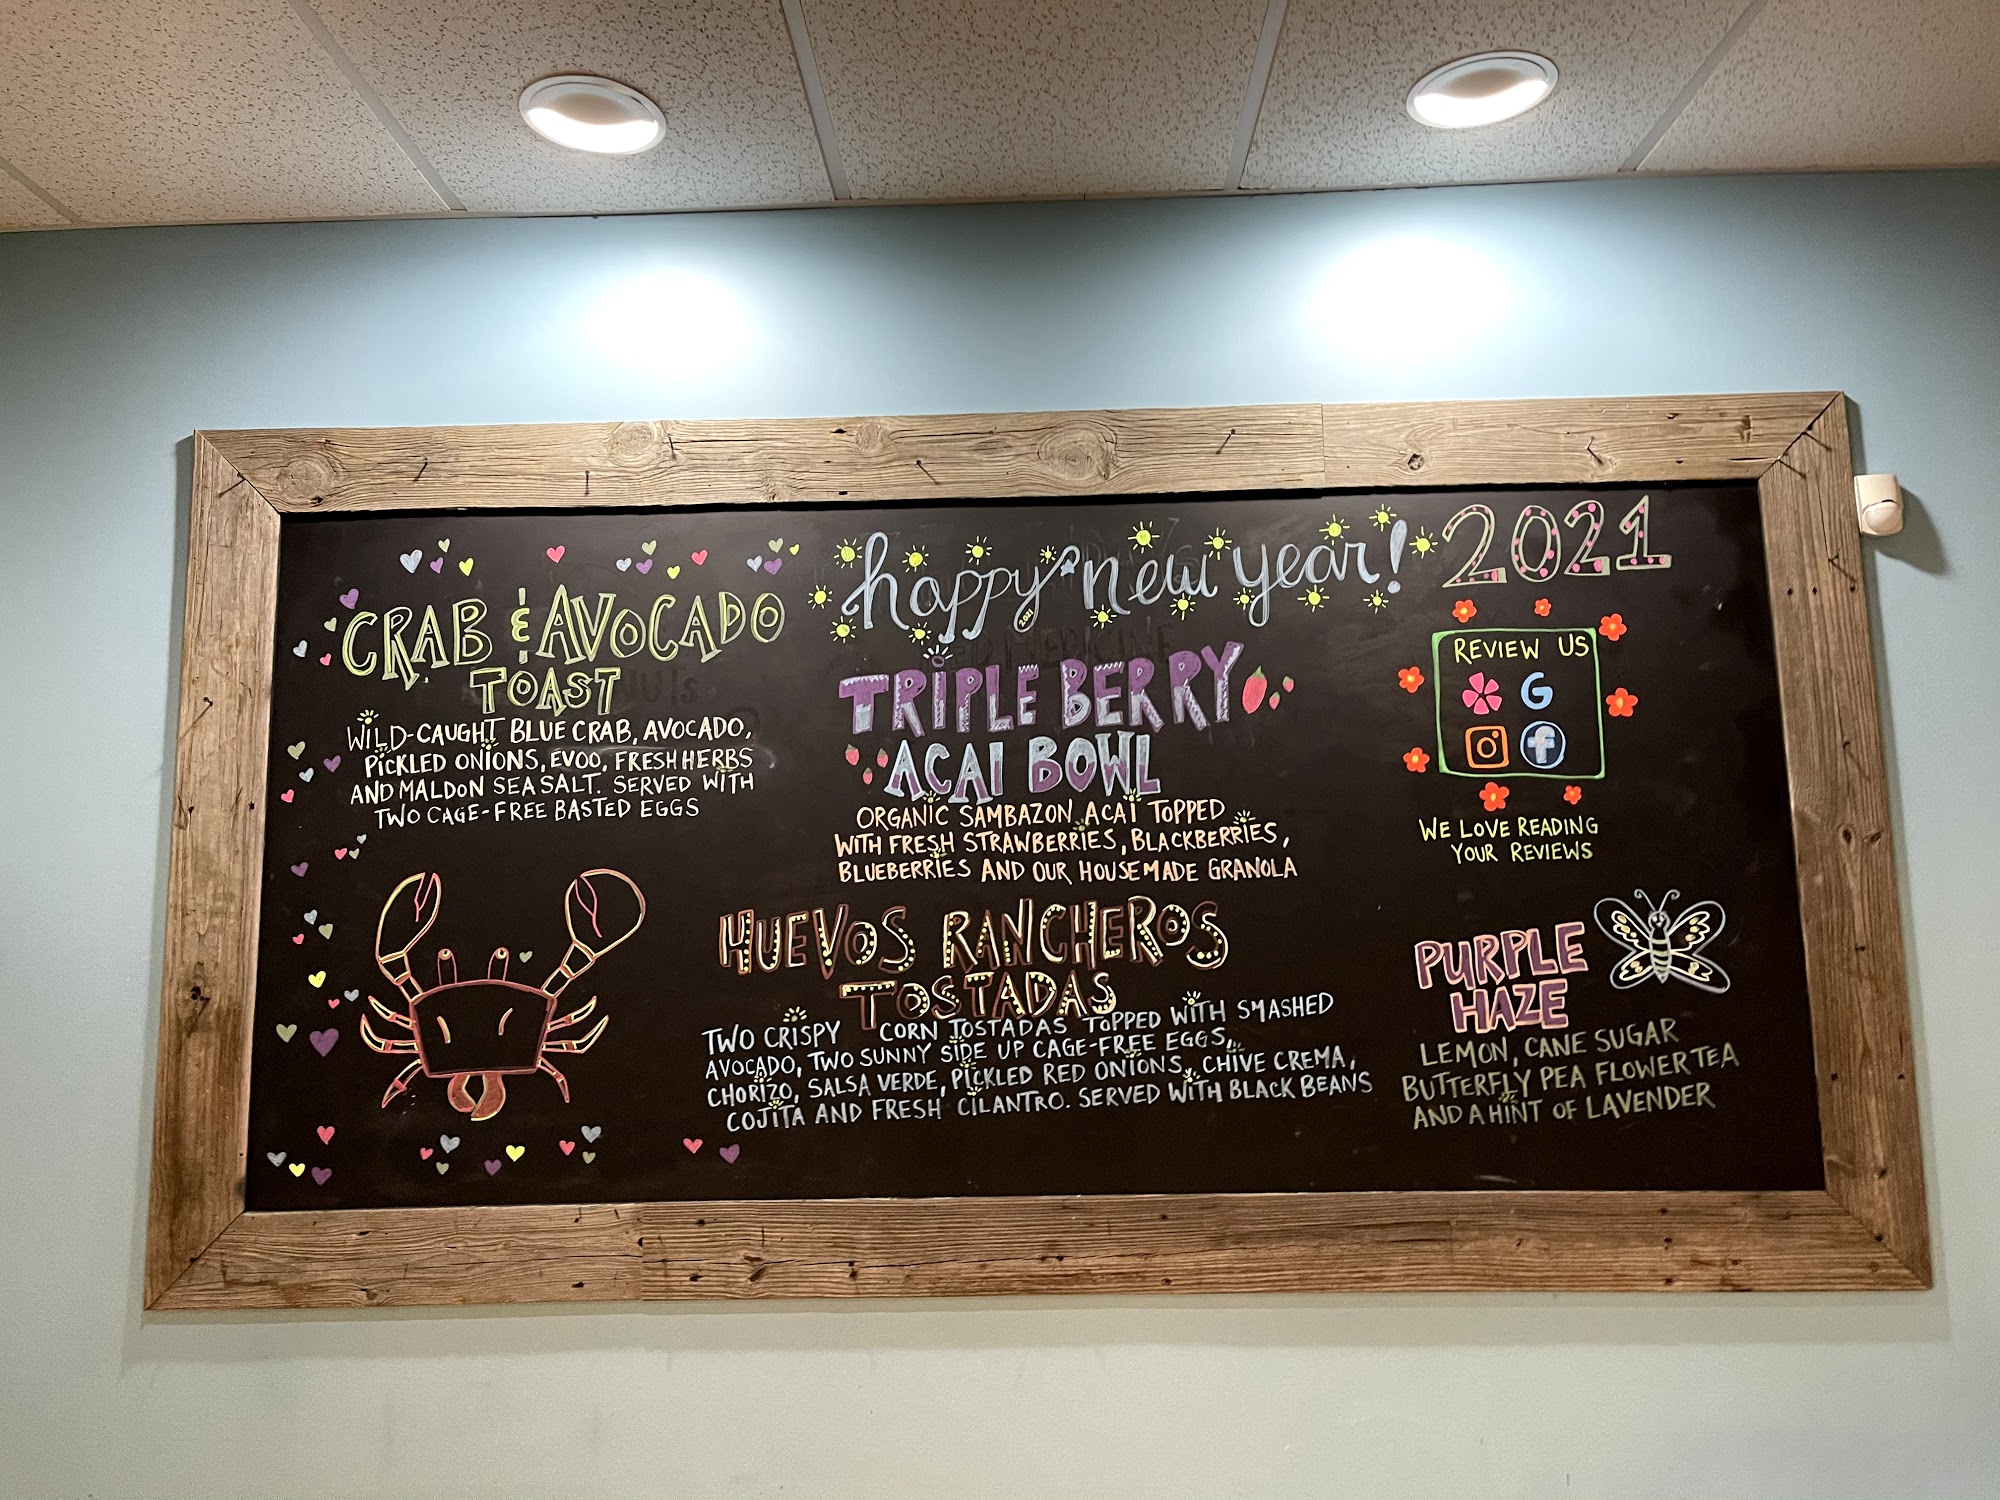 CRAB & AVOCADO
TOAST
WILD-CAUGHT BLUE CRAB, AVOCADO,
PICKLED ONIONS, EVOO, FRESH HERBS
AND MALDON SEA SALT. SERVED WITH
TWO CAGE-FREE BASTED EGGS
happy new year! 2021
2021
TRIPLE BERRY
ACAI BOWL
ORGANIC SAMBAZON ACAI TOPPED
WITH FRESH STRAWBERRIES, BLACKBERRIES,
BLUEBERRIES AND OUR HOUSEMADE GRANOLA
HUEVOS RANCHEROS
TOSTADAS
TWO CRISPY CORN TOSTADAS TOPPED WITH SMASHED
AVOCADO, TWO SUNNY SIDE UP CAGE-FREE EGGS,
CHORIZO, SALSA VERDE, PICKLED RED ONIONS, CHIVE CREMA,
COJITA AND FRESH CILANTRO. SERVED WITH BLACK BEANS
REVIEW US
G
f
WE LOVE READING
YOUR REVIEWS
PURPLE
HAZE
LEMON, CANE SUGAR
BUTTERFLY PEA FLOWER TEA
AND A HINT OF LAVENDER